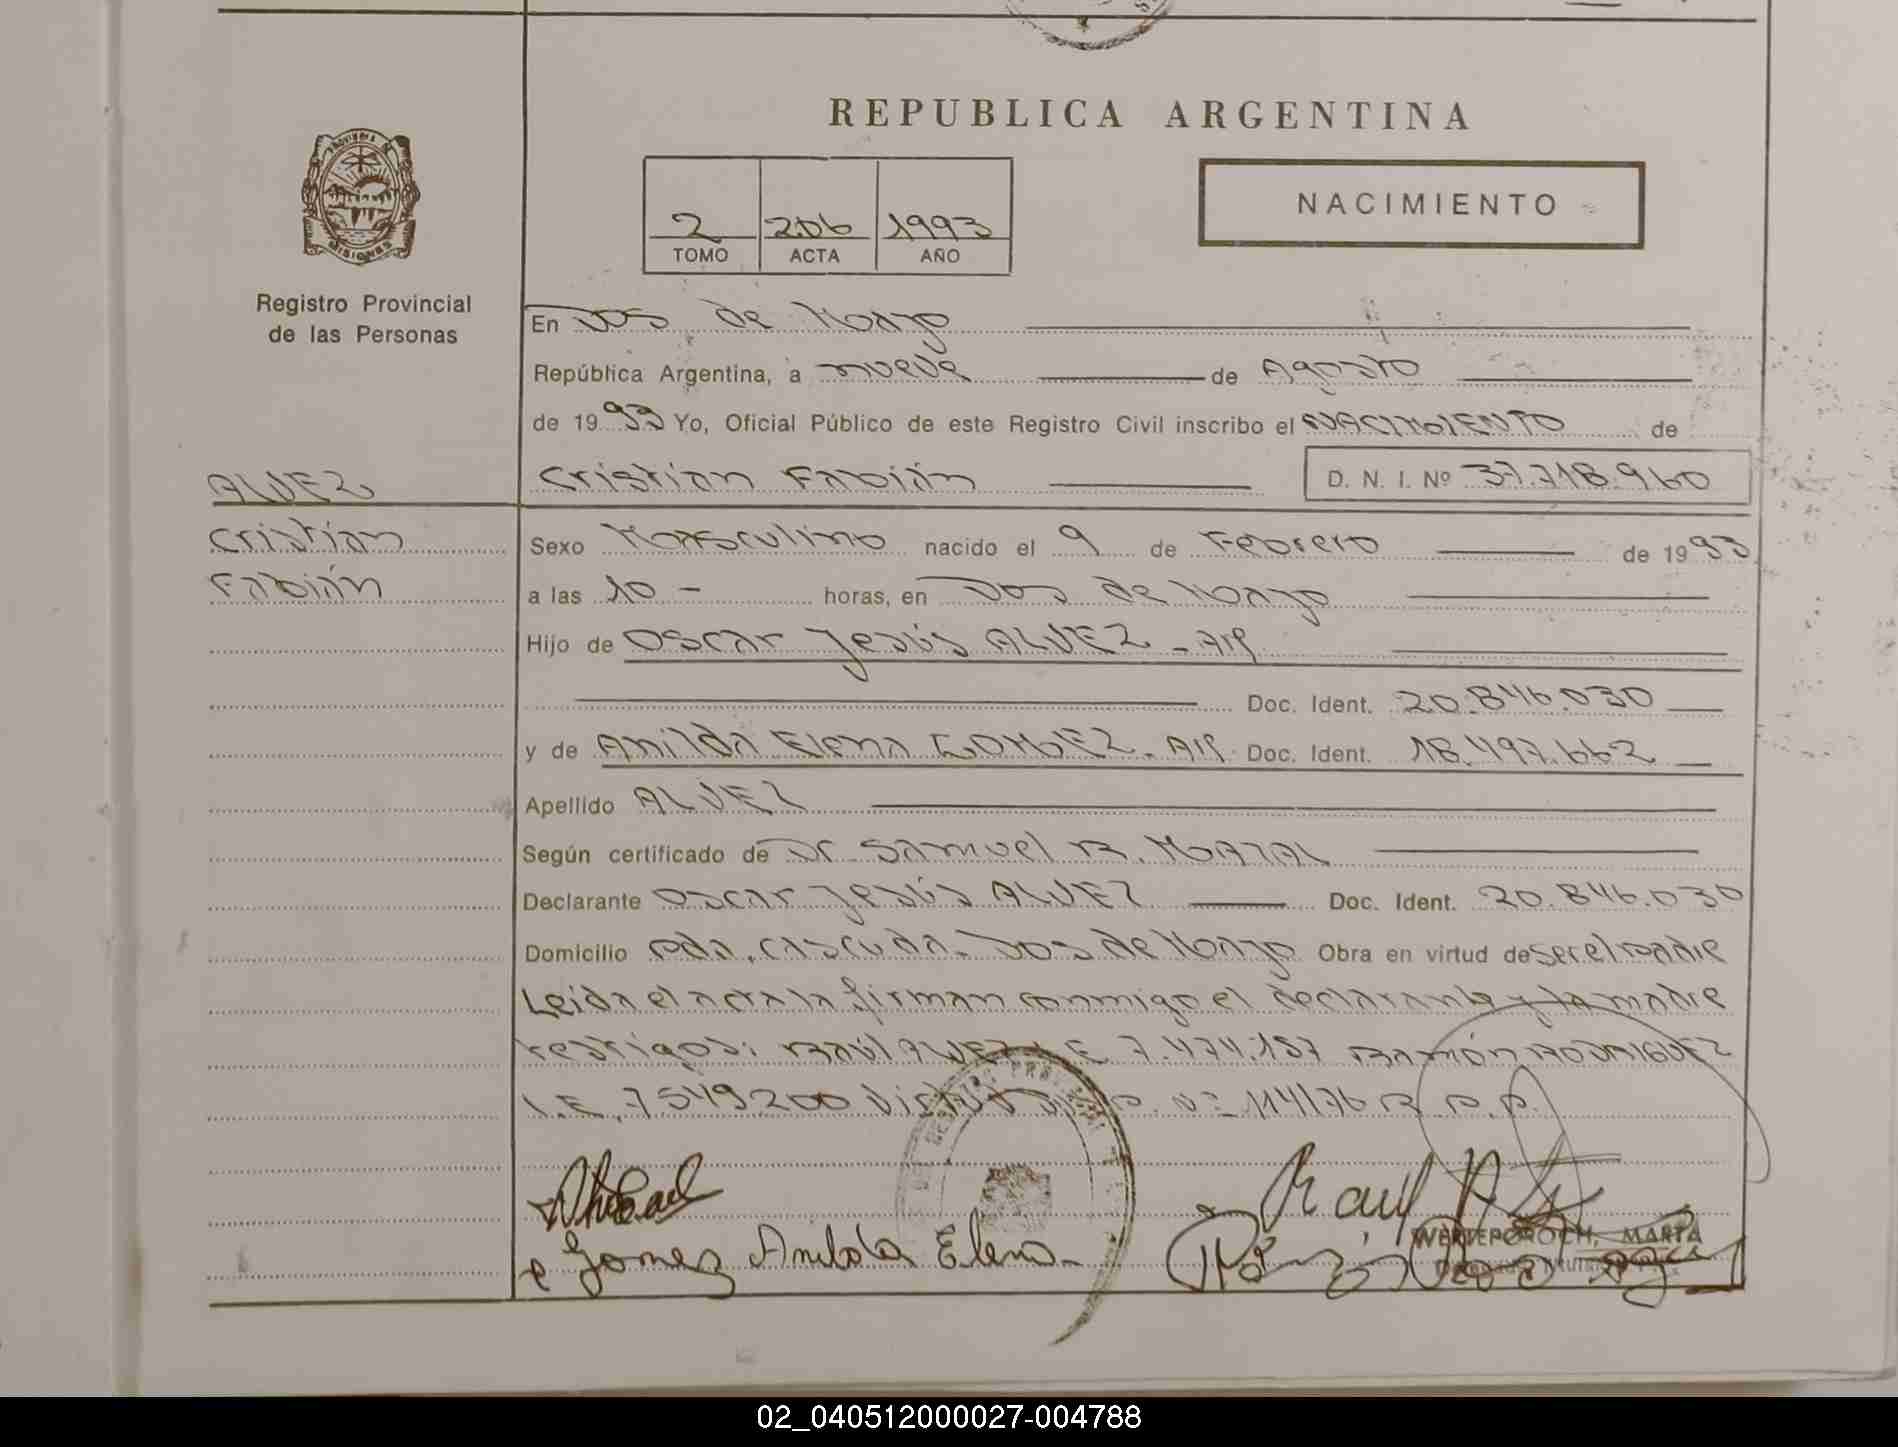 REPUBLICA ARGENTINA
PROVINCIA DE
MISIONES
Registro Provincial
de las Personas
2 206 1993
TOMO ACTA AÑO
NACIMIENTO
En Dos de Mayo
República Argentina, a nueve de Agosto
de 1993 Yo, Oficial Público de este Registro Civil inscribo el NACIMIENTO de
ALVEZ
Cristian Fabián D. N. I. Nº 37.718.960
Cristian
Fabián
Sexo Masculino nacido el 9 de Febrero de 1993
a las 10 - horas, en Dos de Mayo
Hijo de Oscar Jesús ALVEZ - Arg
Doc. Ident. 20.846.030
y de Anilda Elena GOMEZ - Arg. Doc. Ident. 18.497.662
Apellido ALVEZ
Según certificado de Dr. Samuel
Declarante Oscar Jesús ALVEZ Doc. Ident. 20.846.030
Domicilio Pda. Cascuda - Dos de Mayo Obra en virtud de ser el padre
Leida el acta la firman conmigo el declarante y la madre
testigos: Raúl ALVEZ L.E. 7.474.157 Ramón RODRIGUEZ
L.E. 7549200 Nº 114/76 R.P.P.
Raul
Gomez Anilda Elena
WERTEPOROCH, MARTA
02_040512000027-004788